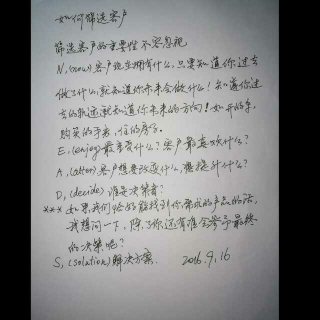 如何筛选客户
筛选客户的重要性不容忽视
N,(now)客户现在拥有什么,只要知道你过去
做了什么,就知道你未来会做什么!知道你过
去的轨迹就知道你未来的方向!如开的车,
购买的手表,住的房子。
E,(enjoy)最享受什么?客户最喜欢什么?
A,(alter)客户想要改变什么,想提升什么?
D,(decide)谁是决策者?
***如果我们恰好能找到你需求的产品的话,
我想问一下,除了你还有谁会参予最终
的决策呢?
S,(solution)解决方案. 2016.9.16